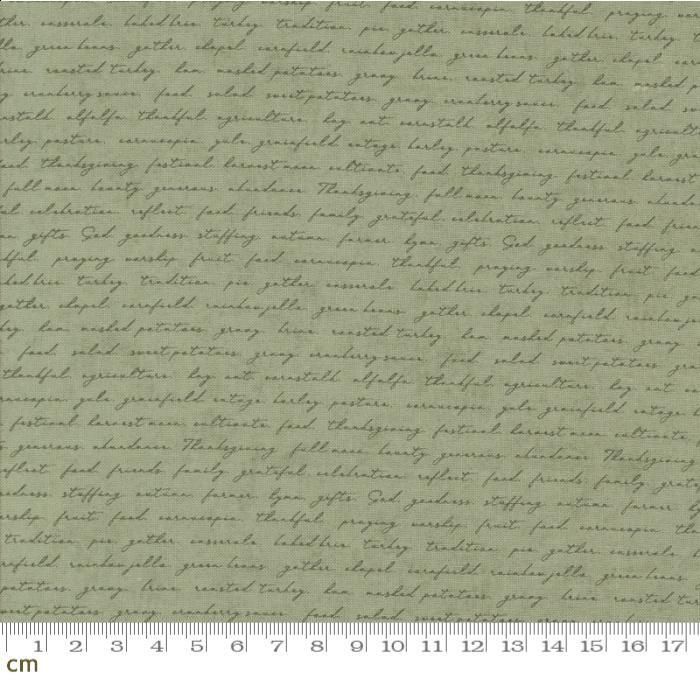 praying worship fruit food cornucopia thankful praying
casserole baked brie turkey tradition pie gather casserole baked brie turkey
green beans gather chapel cornfield rainbow jello green beans gather chapel
brine roasted turkey ham mashed potatoes gravy brine roasted turkey ham mashed
cranberry sauce food salad sweet potatoes gravy cranberry sauce food salad
alfalfa thankful agriculture hay oat cornstalk alfalfa thankful
pasture cornucopia yule grainfield cotage barley pasture cornucopia yule
food thanksgiving festival harvest moon cultivate food thanksgiving festival harvest
full moon bounty generous abundance Thanksgiving full moon bounty generous
celebration reflect food friends family grateful celebration reflect food
gifts God goodness stuffing autumn farmer hymn gifts God goodness stuffing
praying worship fruit food cornucopia thankful praying worship fruit food
baked brie turkey tradition pie gather casserole baked brie turkey tradition pie
gather chapel cornfield rainbow jello green beans gather chapel cornfield
ham mashed potatoes gravy brine roasted turkey ham mashed potatoes gravy
food salad sweet potatoes gravy cranberry sauce food salad sweet potatoes
thankful agriculture hay oat cornstalk alfalfa thankful agriculture hay oat
yule grainfield cotage barley pasture cornucopia yule grainfield cotage
festival harvest moon cultivate food thanksgiving festival harvest moon cultivate
generous abundance Thanksgiving full moon bounty generous abundance Thanksgiving
reflect food friends family grateful celebration reflect food friends family
stuffing autumn farmer hymn gifts God goodness stuffing autumn farmer
fruit food cornucopia thankful praying worship fruit food cornucopia
tradition pie gather casserole baked brie turkey tradition pie gather casserole
rainbow jello green beans gather chapel cornfield rainbow jello green beans
potatoes gravy brine roasted turkey ham mashed potatoes gravy brine roasted
sweet potatoes gravy cranberry sauce food salad sweet potatoes gravy
1 2 3 4 5 6 7 8 9 10 11 12 13 14 15 16 17
cm